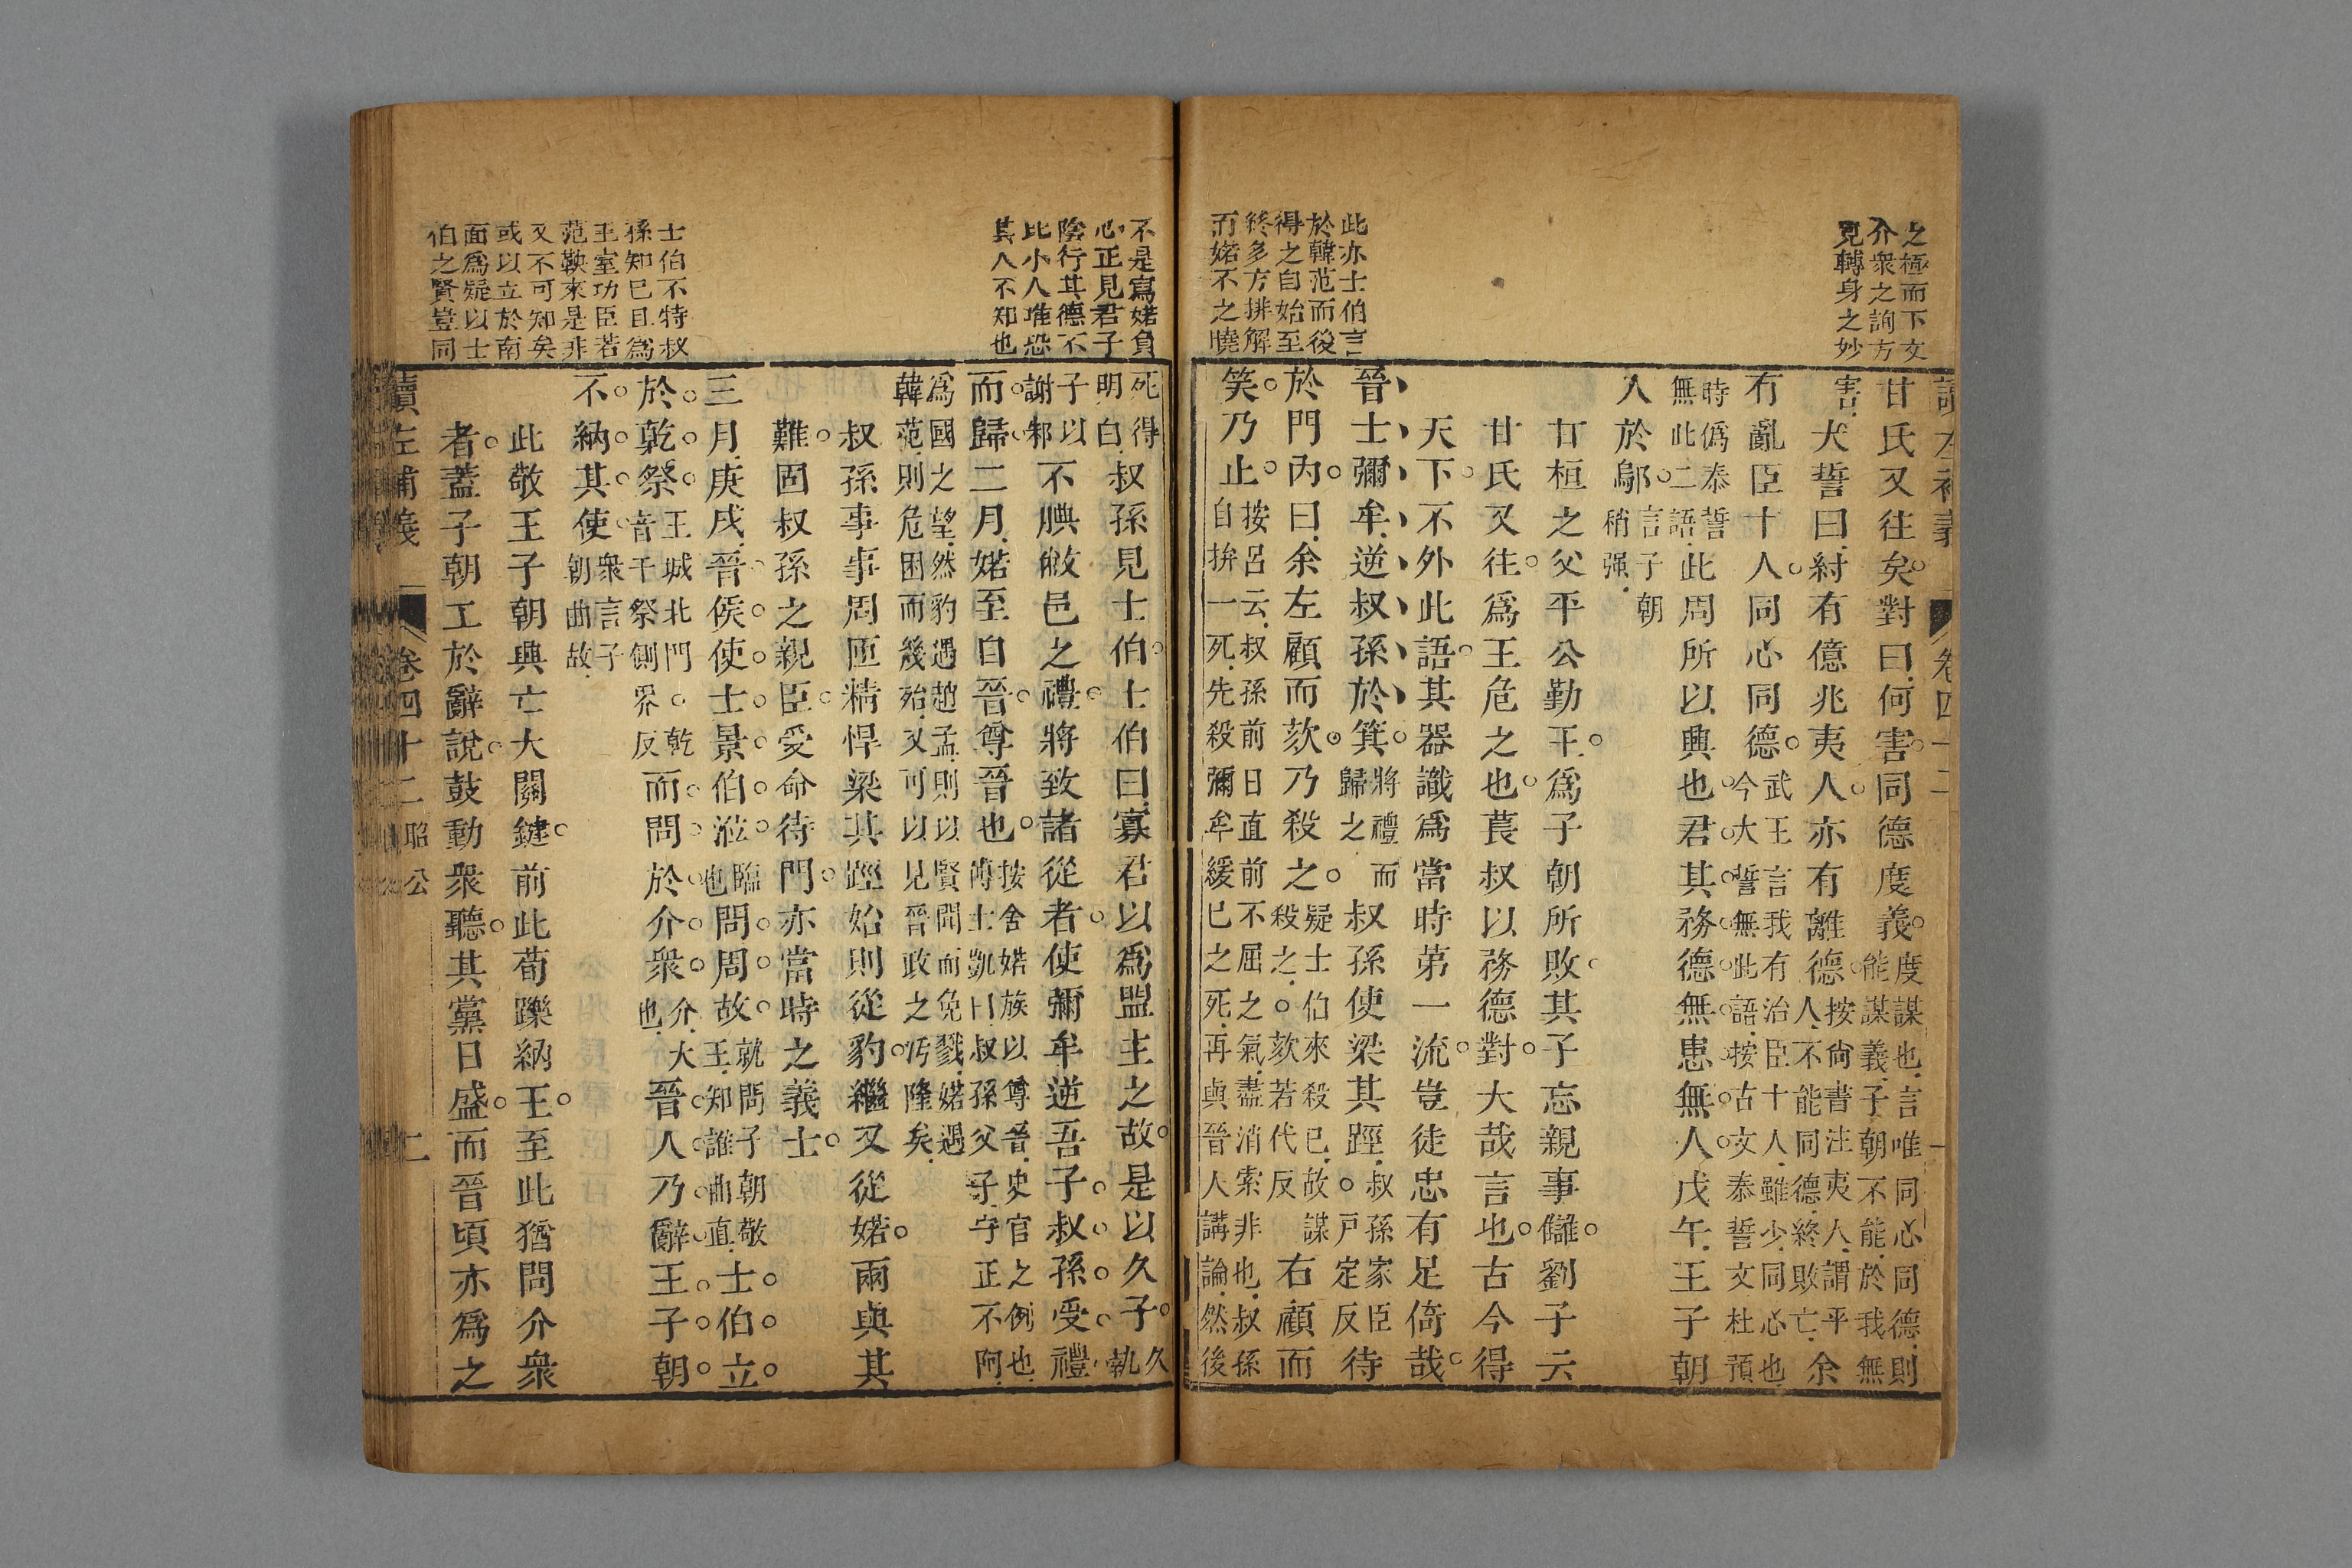 之極而下文
介衆之詢方
見轉身之妙
此亦士伯言
於韓范而後
得之自始至
終多方排解
而婼不之曉
甘氏又往矣對曰何害同德度義度謀也言唯同心同德則能謀義子朝不能於我無
害大誓曰紂有億兆夷人亦有離德按尙書注夷人謂平人不能同德終敗亡余
有亂臣十人同心同德武王言我有治臣十人雖少同心也今大誓無此語按古文泰誓文杜預
時僞泰誓無此二語此周所以興也君其務德無患無人戊午王子朝
入於鄔言子朝稍强
甘桓之父平公勤王爲子朝所敗其子忘親事讎劉子云
甘氏又往爲王危之也萇叔以務德對大哉言也古今得
天下不外此語其器識爲當時第一流豈徒忠有足倚哉
晉士彌牟逆叔孫於箕將禮而歸之叔孫使梁其踁叔孫家臣戸定反待
於門內曰余左顧而欬乃殺之疑士伯來殺已故謀殺之欬若代反右顧而
笑乃止按呂云叔孫前日直前不屈之氣盡消索非也叔孫自拚一死先殺彌牟緩已之死再與晉人講論然後
讀左補義 卷四十二 昭公 二
不是寫婼負
心正見君子
陰行其德不
比小人唯恐
其人不知也
士伯不特叔
孫知已且爲
王室功臣若
范鞅來是非
又不可知矣
或以立於南
面爲疑以士
伯之賢豈同
死得明白叔孫見士伯士伯曰寡君以爲盟主之故是以久子久執
子以謝邾不腆敝邑之禮將致諸從者使彌牟逆吾子叔孫受禮
而歸二月婼至自晉尊晉也按舍婼族以尊晉史官之例也傅士凱曰叔孫父子守正不阿
爲國之望然豹遇趙孟則以賢聞而免戮婼遇韓范則危困而幾殆又可以見晉政之汚隆矣
叔孫事事周匝精悍梁其踁始則從豹繼又從婼兩與其
難固叔孫之親臣受命待門亦當時之義士
三月庚戌晉侯使士景伯涖臨也問周故就問子朝敬王知誰曲直士伯立
於乾祭王城北門乾音干祭側界反而問於介衆介大也晉人乃辭王子朝
不納其使衆言子朝曲故
此敬王子朝興亡大關鍵前此荀躒納王至此猶問介衆
者蓋子朝工於辭說鼓動衆聽其黨日盛而晉頃亦爲之